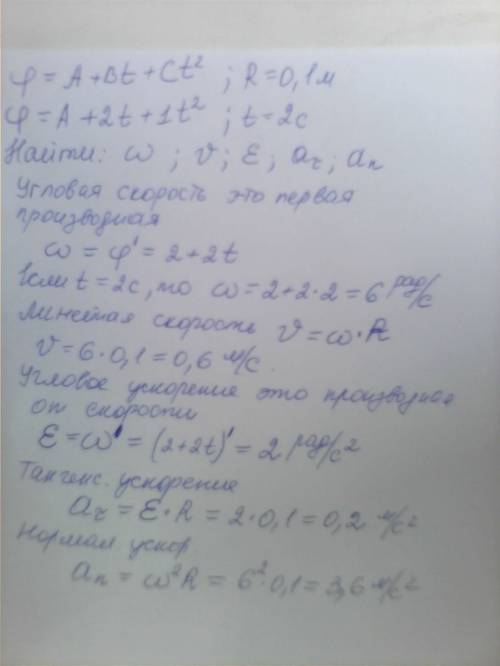 φ = A + Bt + Ct² ; R = 0,1м
φ = A + 2t + 1t² ; t = 2с
Найти: ω ; v ; ε ; aτ ; an
Угловая скорость это первая
производная
ω = φ' = 2 + 2t
Если t = 2с, то ω = 2 + 2·2 = 6 рад/с
Линейная скорость v = ω·R
v = 6·0,1 = 0,6 м/с.
Угловое ускорение это производная
от скорости
ε = ω' = (2+2t)' = 2 рад/с²
Тангенс. ускорение
aτ = ε·R = 2·0,1 = 0,2 м/с²
Нормал ускор.
an = ω²R = 6²·0,1 = 3,6 м/с²